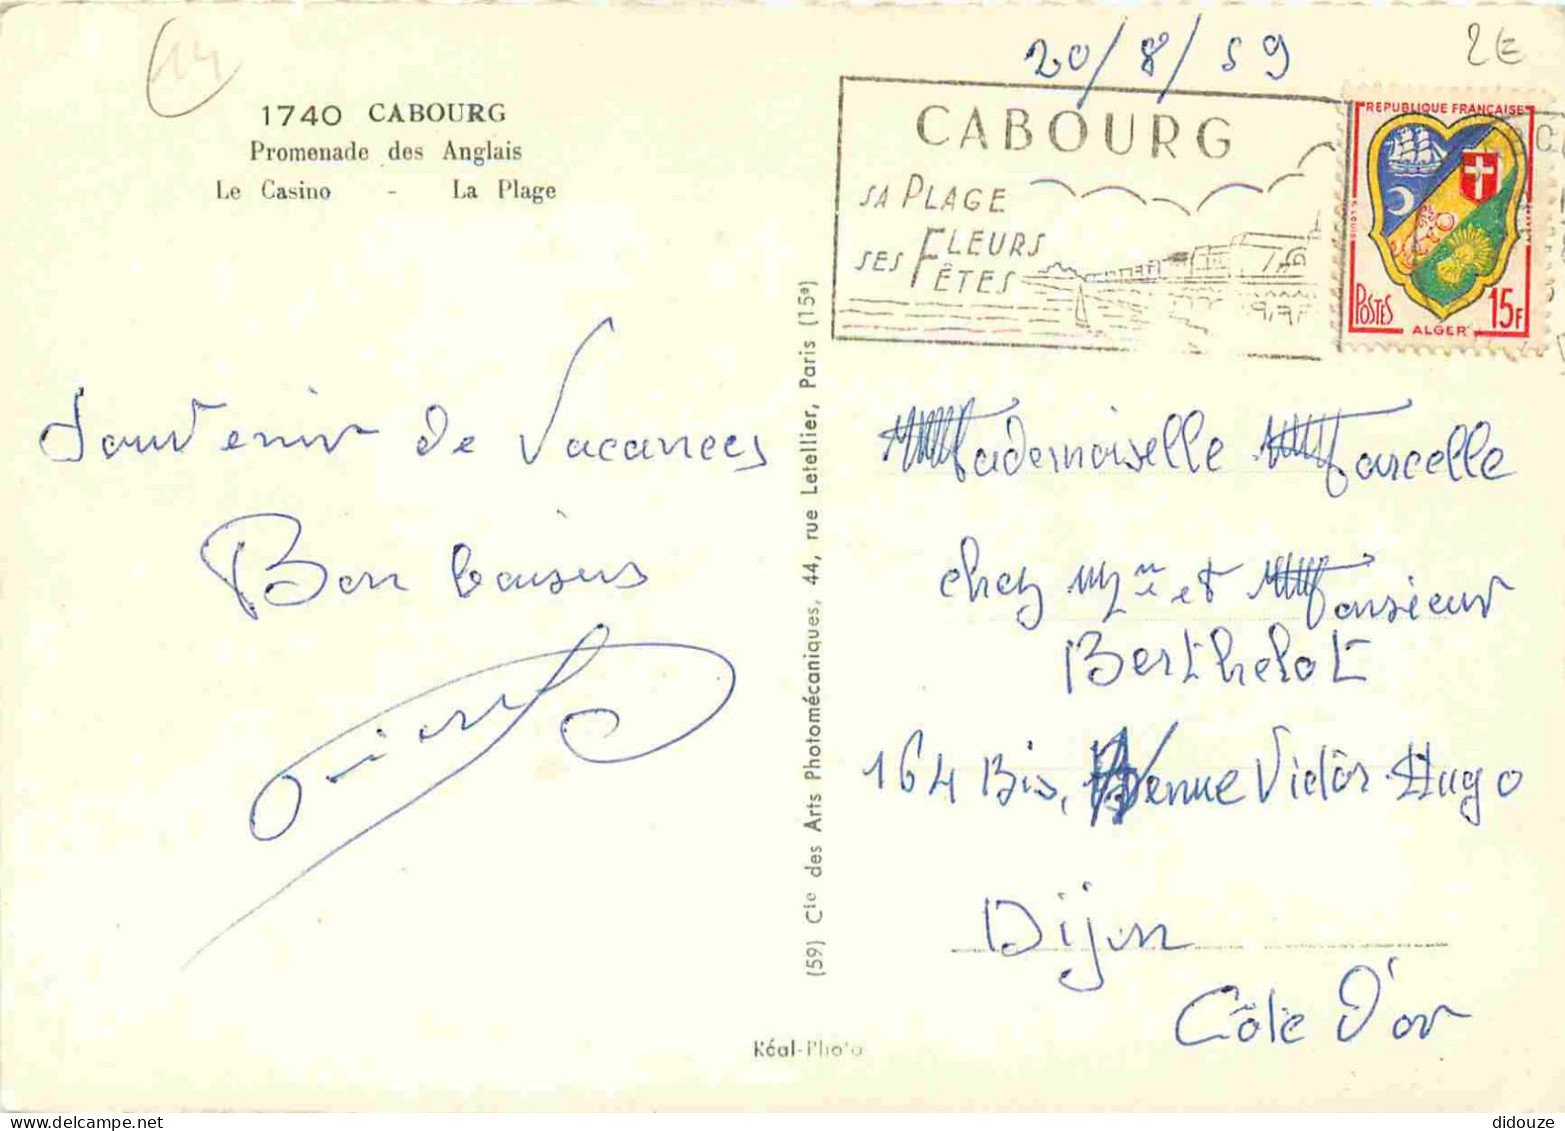 14
1740 CABOURG
Promenade des Anglais
Le Casino - La Plage
20/8/59
2E
CABOURG
SA PLAGE
SES FLEURS
FÊTES
REPUBLIQUE FRANÇAISE
POSTES
15F
ALGER
Souvenir de Vacances
Bon baisers
(59) Cie des Arts Photomécaniques, 44, rue Letellier, Paris (15e)
Mademoiselle Marcelle
chez Mme et Monsieur
Berthelot
164 Bis, Avenue Victor Hugo
Dijon
Côte d'or
Réal-Photo
didouze
delcampe.net